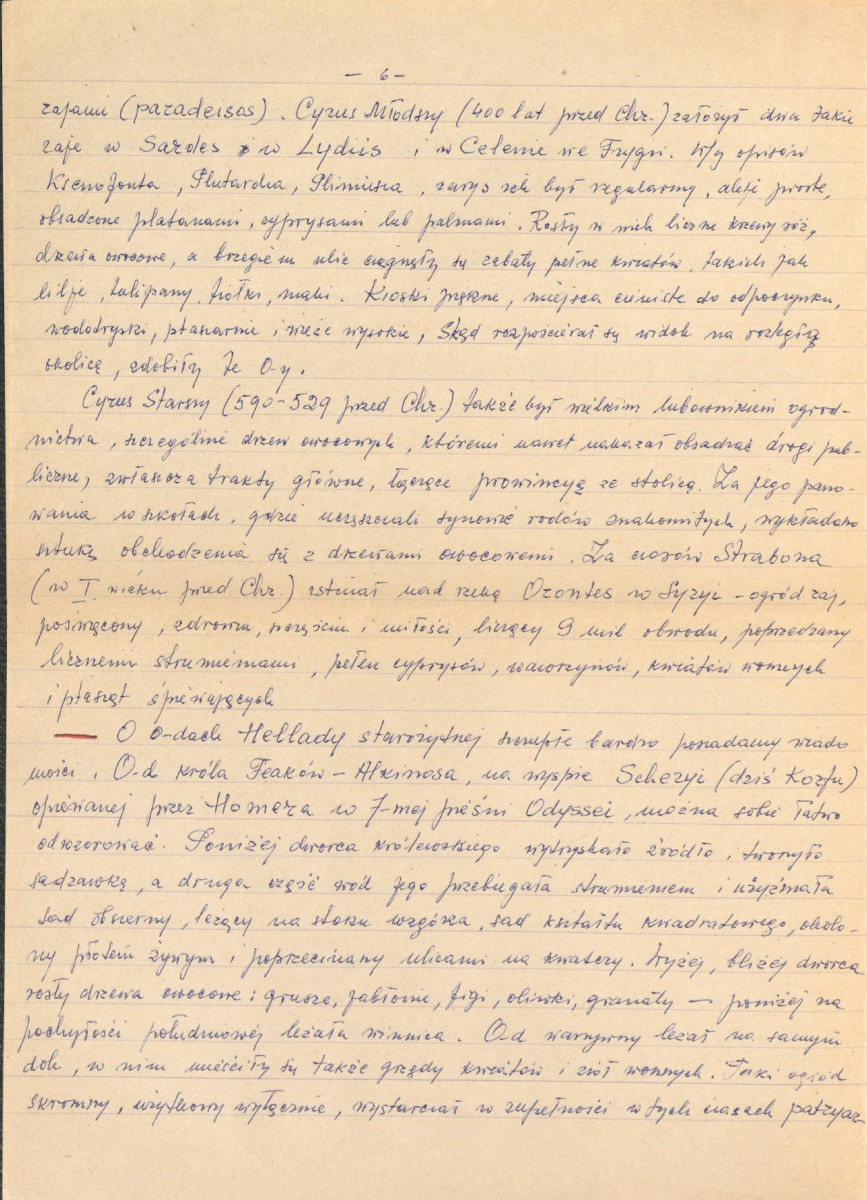 - 6 -
rajami (paradeisos). Cyrus Młodszy (400 lat przed Chr.) założył dwa takie
raje w Sardes i w Lydiis i w Celenie we Frygii. W/g opisów
Ksenofonta, Plutarcha, Pliniusza, zarys ich był regularny, aleje proste,
obsadzone platanami, cyprysami lub palmami. Rosły w nich liczne krzewy róż,
drzewa owocowe, a brzegiem ulic ciągnęły się rabaty pełne kwiatów, takich jak
lilje, tulipany, fiołki, maki. Kioski piękne, miejsca cieniste do odpoczynku,
wodotryski, ptaszarnie i wieże wysokie, skąd rozpościerał się widok na rozległą
okolicę, zdobiły te O-y.
Cyrus Starszy (590-529 przed Chr.) także był wielkim lubownikiem ogrod-
nictwa, szczególnie drzew owocowych, któremi nawet nakazał obsadzać drogi pub-
liczne, zwłaszcza trakty główne, łączące prowincyę ze stolicą. Za jego pano-
wania w szkołach, gdzie uczęszczali synowie rodów znakomitych, wykładano
sztukę obchodzenia się z drzewami owocowemi. Za czasów Strabona
(w I wieku przed Chr.) istniał nad rzeką Orontes w Syryi - ogród raj,
poświęcony, zdrowiu, szczęściu i miłości, liczący 9 mil obwodu, poprzedzany
licznemi strumieniami, pełen cyprysów, wawrzynów, kwiatów wonnych
i ptasząt śpiewających
O O-dach Hellady starożytnej szczupłe bardzo posiadamy wiado
mości. O-d króla Feaków - Alkinosa, na wyspie Scheryi (dziś Korfu)
opiewanej przez Homera w 7-mej pieśni Odyssei, można sobie łatwo
odwzorować. Poniżej dworca królewskiego wytryskało źródło, i tworzyło
sadzawkę, a druga część wód jego przebiegała strumieniem i użyźniała
sad obszerny, leżący na stoku wzgórka, sad kształtu kwadratowego, okolo-
ny płotem żywym i poprzecinany ulicami na kwatery. Wyżej, bliżej dworca
rosły drzewa owocowe: grusze, jabłonie, figi, oliwki, granaty - poniżej na
pochyłości południowej leżała winnica. O-d warzywny leżał na samym
dole, w nim mieściły się także grzędy kwiatów i ziół wonnych. Taki ogród
skromny, użytkowy wyłącznie, wystarczał w zupełności w tych czasach patryar-